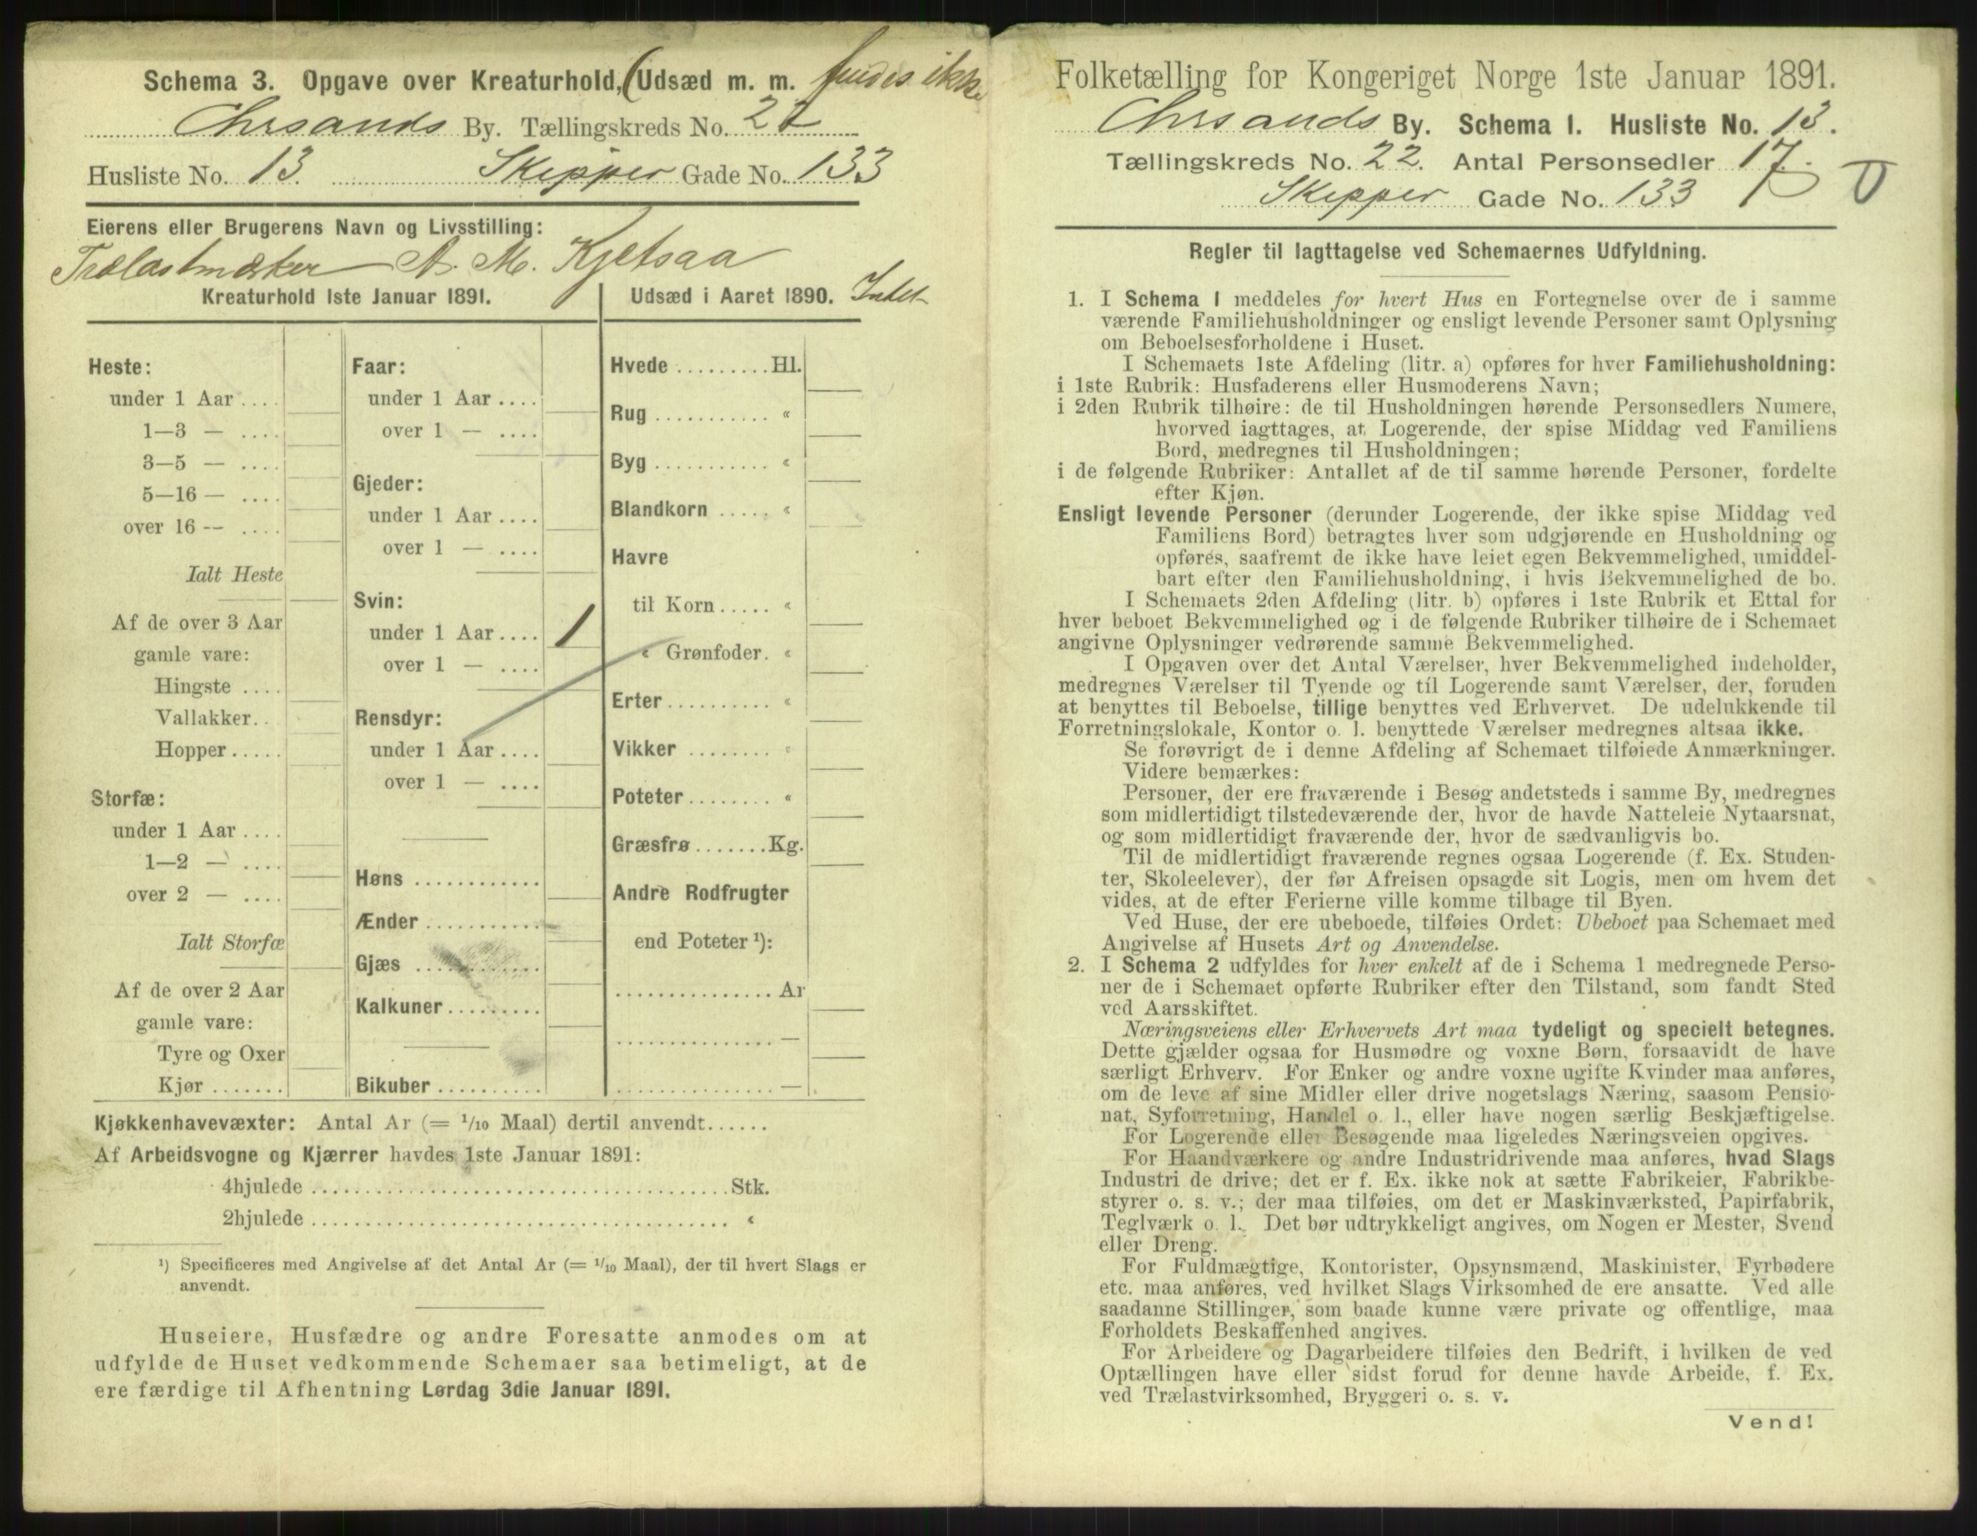 Schema 3. Opgave over Kreaturhold, (Udsæd m. m. findes ikke
Chrsands By. Tællingskreds No. 22
Husliste No. 13. Skipper Gade No. 133
Eierens eller Brugerens Navn og Livsstilling:
Trælastmæker A. M. Kjetsaa
Kreaturhold 1ste Januar 1891.
Heste:
under 1 Aar ....
1—3 — ....
3—5 — ....
5—16 — ....
over 16 — ....
Ialt Heste
Af de over 3 Aar
gamle vare:
Hingste ....
Vallakker..
Hopper.....
Storfæ:
under 1 Aar ....
1—2 — ....
over 2 — ....
Ialt Storfæ
Af de over 2 Aar
gamle vare:
Tyre og Oxer
Kjør .......
Faar:
under 1 Aar ....
over 1 — ....
Gjeder:
under 1 Aar ....
over 1 — ....
Svin:
under 1 Aar .... 1
over 1 — ....
Rensdyr:
under 1 Aar ....
over 1 — ....
Høns ............
Ænder ...........
Gjæs ............
Kalkuner.........
Bikuber ..........
Udsæd i Aaret 1890. Intet
Hvede .........Hl.
Rug ........... «
Byg ........... «
Blandkorn ..... «
Havre
til Korn..... «
« Grønfoder. «
Erter.......... «
Vikker ........ «
Poteter........ «
Græsfrø.......Kg.
Andre Rodfrugter
end Poteter ¹):
............... Ar
............... —
............... —
Kjøkkenhavevæxter: Antal Ar (= 1/10 Maal) dertil anvendt......
Af Arbeidsvogne og Kjærrer havdes 1ste Januar 1891:
4hjulede ........................................Stk.
2hjulede ........................................ «
¹) Specificeres med Angivelse af det Antal Ar (= 1/10 Maal), der til hvert Slags er
anvendt.
Huseiere, Husfædre og andre Foresatte anmodes om at
udfylde de Huset vedkommende Schemaer saa betimeligt, at de
ere færdige til Afhentning Lørdag 3die Januar 1891.
Folketælling for Kongeriget Norge 1ste Januar 1891.
Chrsands By. Schema 1. Husliste No. 13.
Tællingskreds No. 22. Antal Personsedler 17.
Skipper Gade No. 133
Regler til Iagttagelse ved Schemaernes Udfyldning.
1. I Schema 1 meddeles for hvert Hus en Fortegnelse over de i samme
værende Familiehusholdninger og ensligt levende Personer samt Oplysning
om Beboelsesforholdene i Huset.
I Schemaets 1ste Afdeling (litr. a) opføres for hver Familiehusholdning:
i 1ste Rubrik: Husfaderens eller Husmoderens Navn;
i 2den Rubrik tilhøire: de til Husholdningen hørende Personsedlers Numere,
hvorved iagttages, at Logerende, der spise Middag ved Familiens
Bord, medregnes til Husholdningen;
i de følgende Rubriker: Antallet af de til samme hørende Personer, fordelte
efter Kjøn.
Ensligt levende Personer (derunder Logerende, der ikke spise Middag ved
Familiens Bord) betragtes hver som udgjørende en Husholdning og
opføres, saafremt de ikke have leiet egen Bekvemmelighed, umiddel-
bart efter den Familiehusholdning, i hvis Bekvemmelighed de bo.
I Schemaets 2den Afdeling (litr. b) opføres i 1ste Rubrik et Ettal for
hver beboet Bekvemmelighed og i de følgende Rubriker tilhøire de i Schemaet
angivne Oplysninger vedrørende samme Bekvemmelighed.
I Opgaven over det Antal Værelser, hver Bekvemmelighed indeholder,
medregnes Værelser til Tyende og til Logerende samt Værelser, der, foruden
at benyttes til Beboelse, tillige benyttes ved Erhvervet. De udelukkende til
Forretningslokale, Kontor o. l. benyttede Værelser medregnes altsaa ikke.
Se forøvrigt de i denne Afdeling af Schemaet tilføiede Anmærkninger.
Videre bemærkes:
Personer, der ere fraværende i Besøg andetsteds i samme By, medregnes
som midlertidigt tilstedeværende der, hvor de havde Natteleie Nytaarsnat,
og som midlertidigt fraværende der, hvor de sædvanligvis bo.
Til de midlertidigt fraværende regnes ogsaa Logerende (f. Ex. Studen-
ter, Skoleelever), der før Afreisen opsagde sit Logis, men om hvem det
vides, at de efter Ferierne ville komme tilbage til Byen.
Ved Huse, der ere ubeboede, tilføies Ordet: Ubeboet paa Schemaet med
Angivelse af Husets Art og Anvendelse.
2. I Schema 2 udfyldes for hver enkelt af de i Schema 1 medregnede Perso-
ner de i Schemaet opførte Rubriker efter den Tilstand, som fandt Sted
ved Aarsskiftet.
Næringsveiens eller Erhvervets Art maa tydeligt og specielt betegnes.
Dette gjælder ogsaa for Husmødre og voxne Børn, forsaavidt de have
særligt Erhverv. For Enker og andre voxne ugifte Kvinder maa anføres,
om de leve af sine Midler eller drive nogetslags Næring, saasom Pensio-
nat, Syforretning, Handel o. l., eller have nogen særlig Beskjæftigelse.
For Logerende eller Besøgende maa ligeledes Næringsveien opgives.
For Haandværkere og andre Industridrivende maa anføres, hvad Slags
Industri de drive; det er f. Ex. ikke nok at sætte Fabrikeier, Fabrikbe-
styrer o. s. v.; der maa tilføies, om det er Maskinværksted, Papirfabrik,
Teglværk o. l. Det bør udtrykkeligt angives, om Nogen er Mester, Svend
eller Dreng.
For Fuldmægtige, Kontorister, Opsynsmænd, Maskinister, Fyrbødere
etc. maa anføres, ved hvilket Slags Virksomhed de ere ansatte. Ved alle
saadanne Stillinger, som baade kunne være private og offentlige, maa
Forholdets Beskaffenhed angives.
For Arbeidere og Dagarbeidere tilføies den Bedrift, i hvilken de ved
Optællingen have eller sidst forud for denne havde Arbeide, f. Ex.
ved Trælastvirksomhed, Bryggeri o. s. v.
Vend!